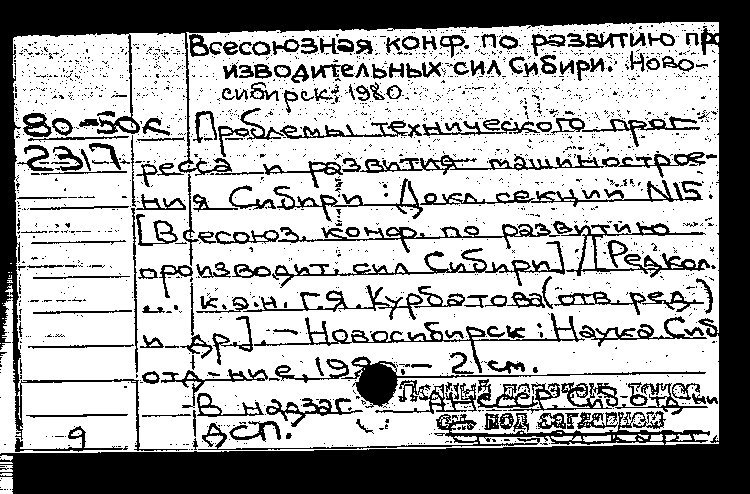 Всесоюзная конф. по развитию про
изводительных сил Сибири. Ново-
сибирск, 1980.
80-50к Проблемы технического прог-
2317 ресса и развития машинострое-
ния Сибири : Докл. секции N15.
[Всесоюз. конф. по развитию
производит. сил Сибири] / [Редкол.
... к.э.н. Г.Я. Курбатова (отв. ред.)
и др.]. — Новосибирск : Наука Сиб
отд-ние, — 21 см.
В надзаг. АН СССР. Сиб. отд-ни
Полный перечень томов
ДСП.
см. под заглавием
9